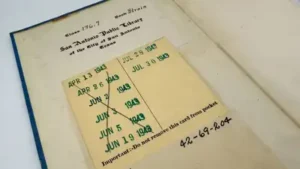 Class 796.7 Book
San Antonio Public Library
of the City of San Antonio
Texas
APR 13 1943
APR 26 1943
JUN 1943
JUN 1943
JUN 5 1943
JUN 19 1943
JUL 1943
JUL 30 1943
Important:-Do not remove this card from pocket
42-69-204